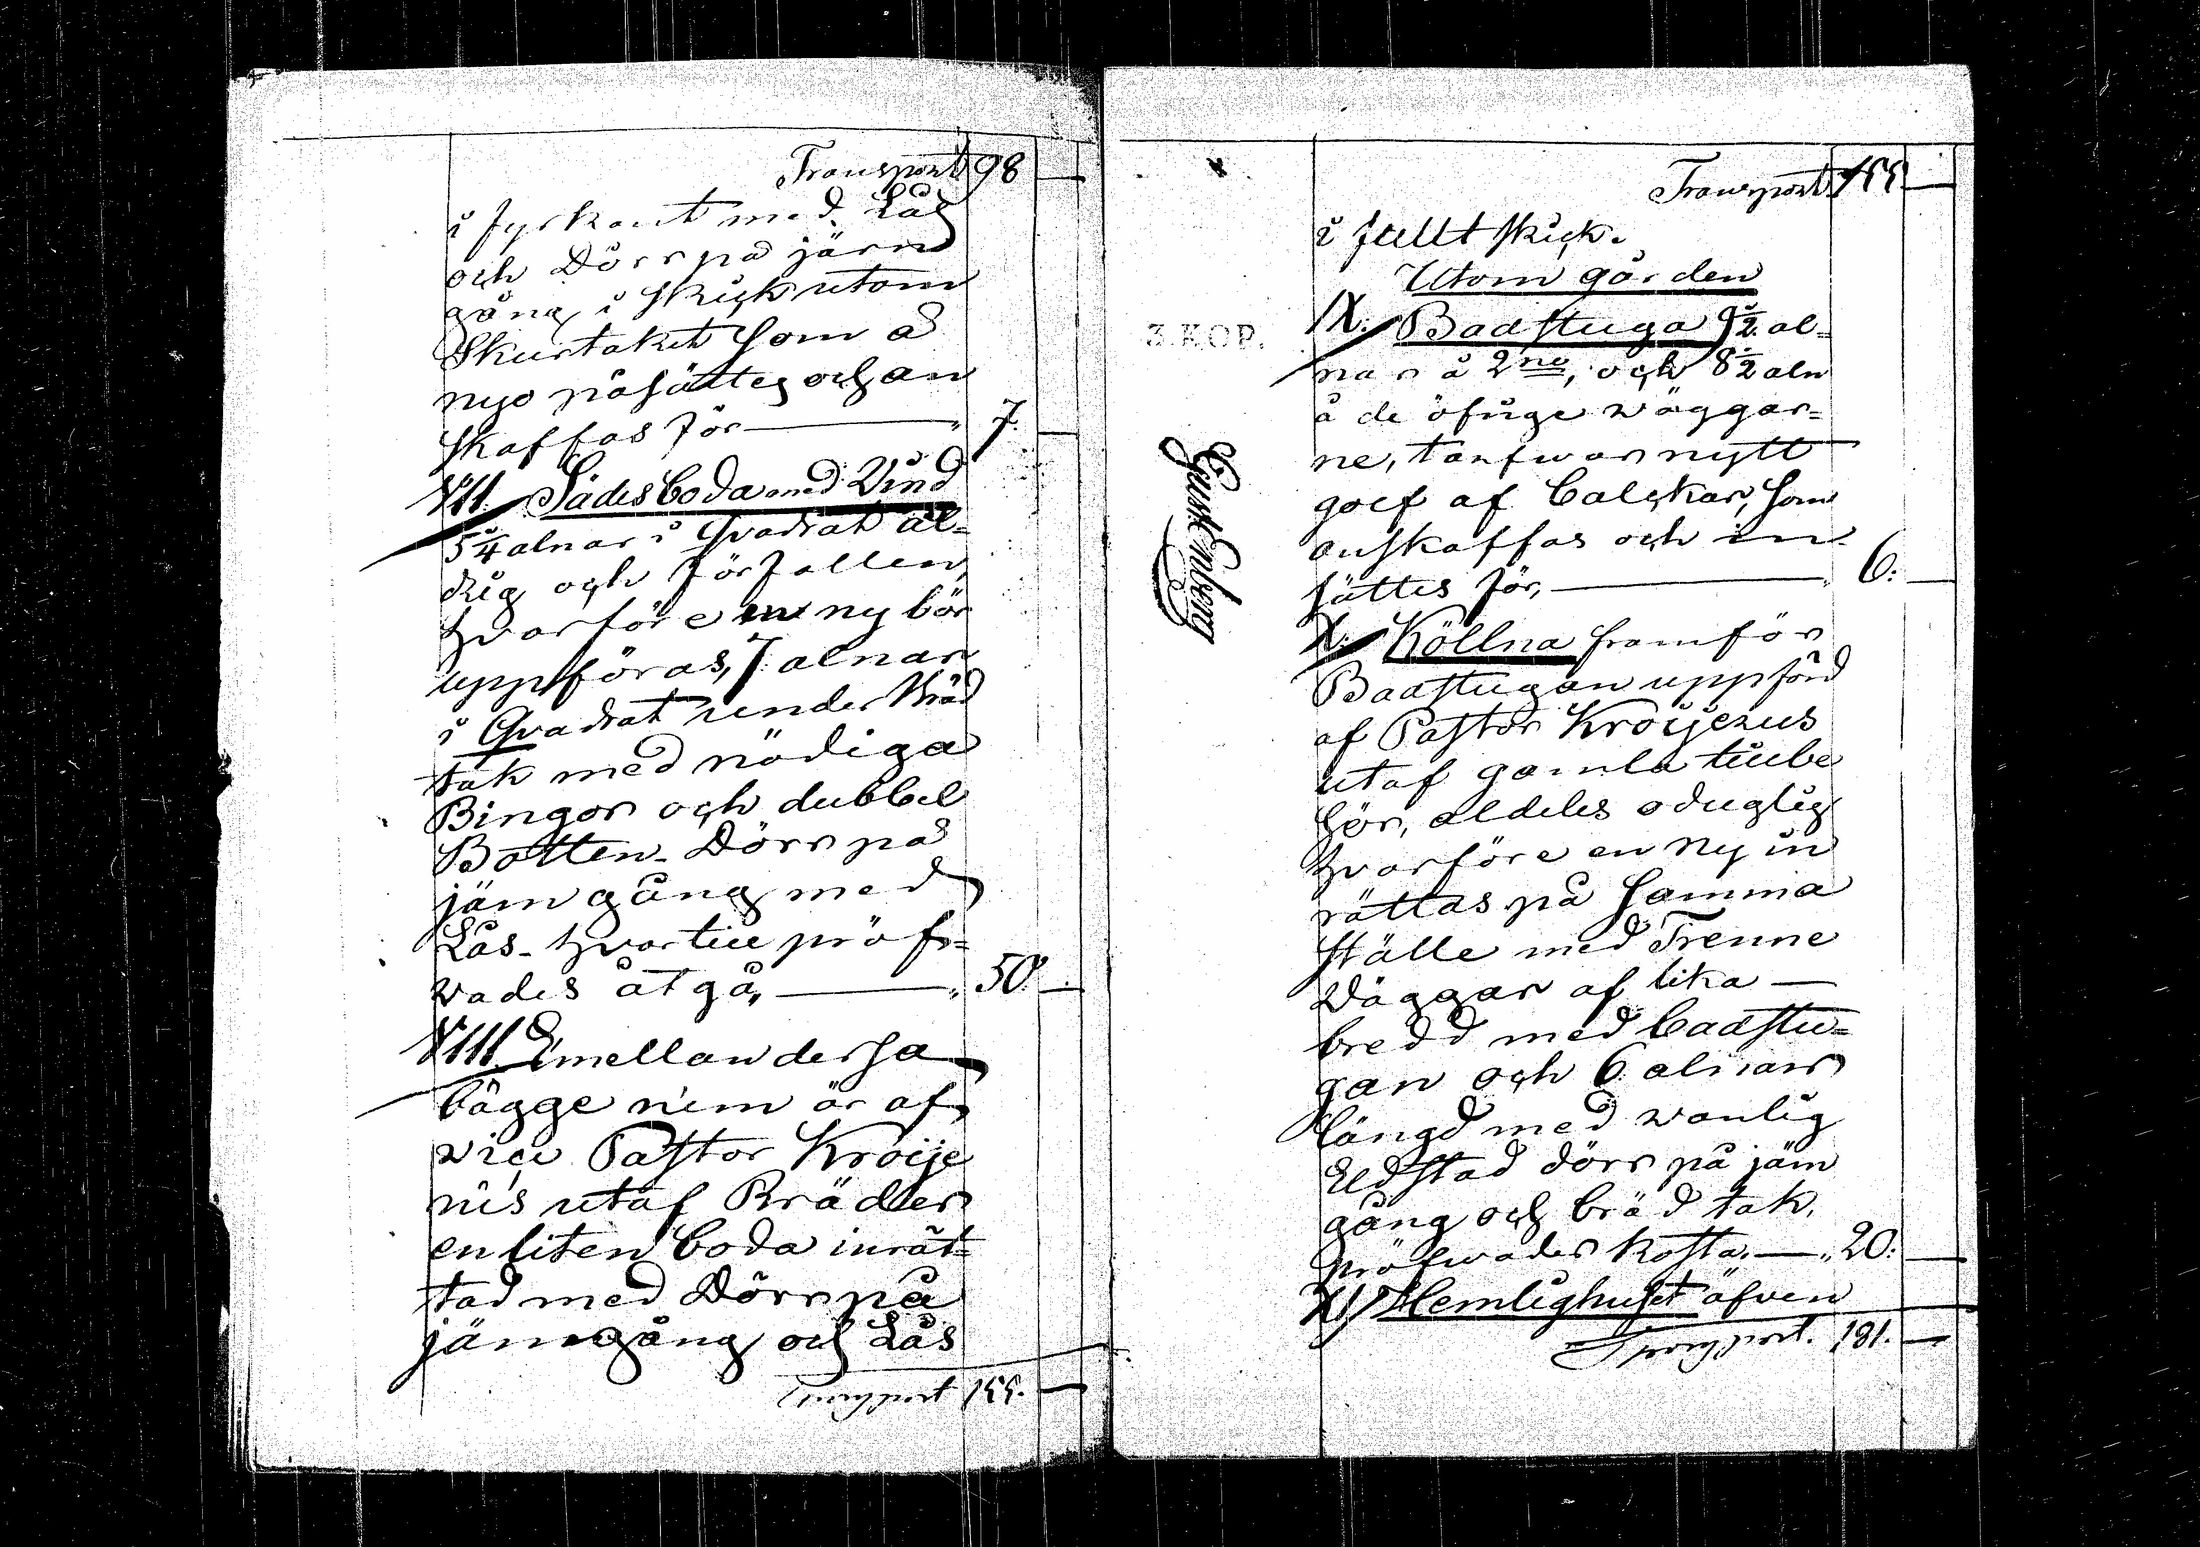 Transport 98 —
i fyrkant med Lås
och Dörr på järn
gång i skick utom
Skurtaket som å
nyo påsättes och an
skaffas för — " 7. —
VII. Sädesboda med Vind
5 1/4 alnar i Qvadrat äl=
drig och förfallen,
hvarföre en ny bör
uppföras, 7 alnar
i Qvadrat under Bräd
tak med nödiga
Bingor och dubbel
Botten. Dörr på
järn gång med
Lås. hvartill pröf=
vades åtgå, — " 50. —
VIII. Emellan dessa
bägge rum är af
vice Pastor Kroije
nis utaf Bräder
en liten boda inrät=
tad med Dörr på
järngång och Lås
Transport 155. —
Transport. 155 —
i fullt skick.
Utom gården
IX. Badstuga 9 1/2 al=
3. KOP.
nar å 2ne, och 8 1/2 aln
å de öfrige wäggar=
ne, tarfwar nytt
golf af balckar, som
anskaffas och in=
sättes för, — " 6. —
Gust Enberg
X. Köllna framför
Badstugan uppförd
af Pastor Kroijerus
utaf gamla tillbe
hör, aldeles oduglig
hvarföre en ny in
rättas på samma
ställe med Trenne
Väggar af lika —
bredd med badstu=
gan och 6 alnars
längd med wanlig
Eldstad dörr på järn
gång och bräd tak,
pröfwades kosta. — " 20. —
XI. Hemlighuset äfven
Transport. 181. —